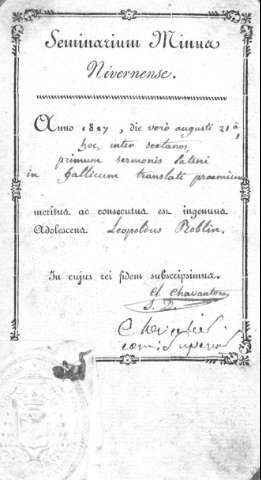 Seminarium Minus
Nivernense.
Anno 1827, die verò augusti 21â,
hoc inter sextanos,
primum sermonis latini
in Gallicum translati praemium
meritus ac consecutus est ingenuus
Adolescens Leopoldus Roblin.
In cujus rei fidem subscripsimus.
Chavanton
S. P.